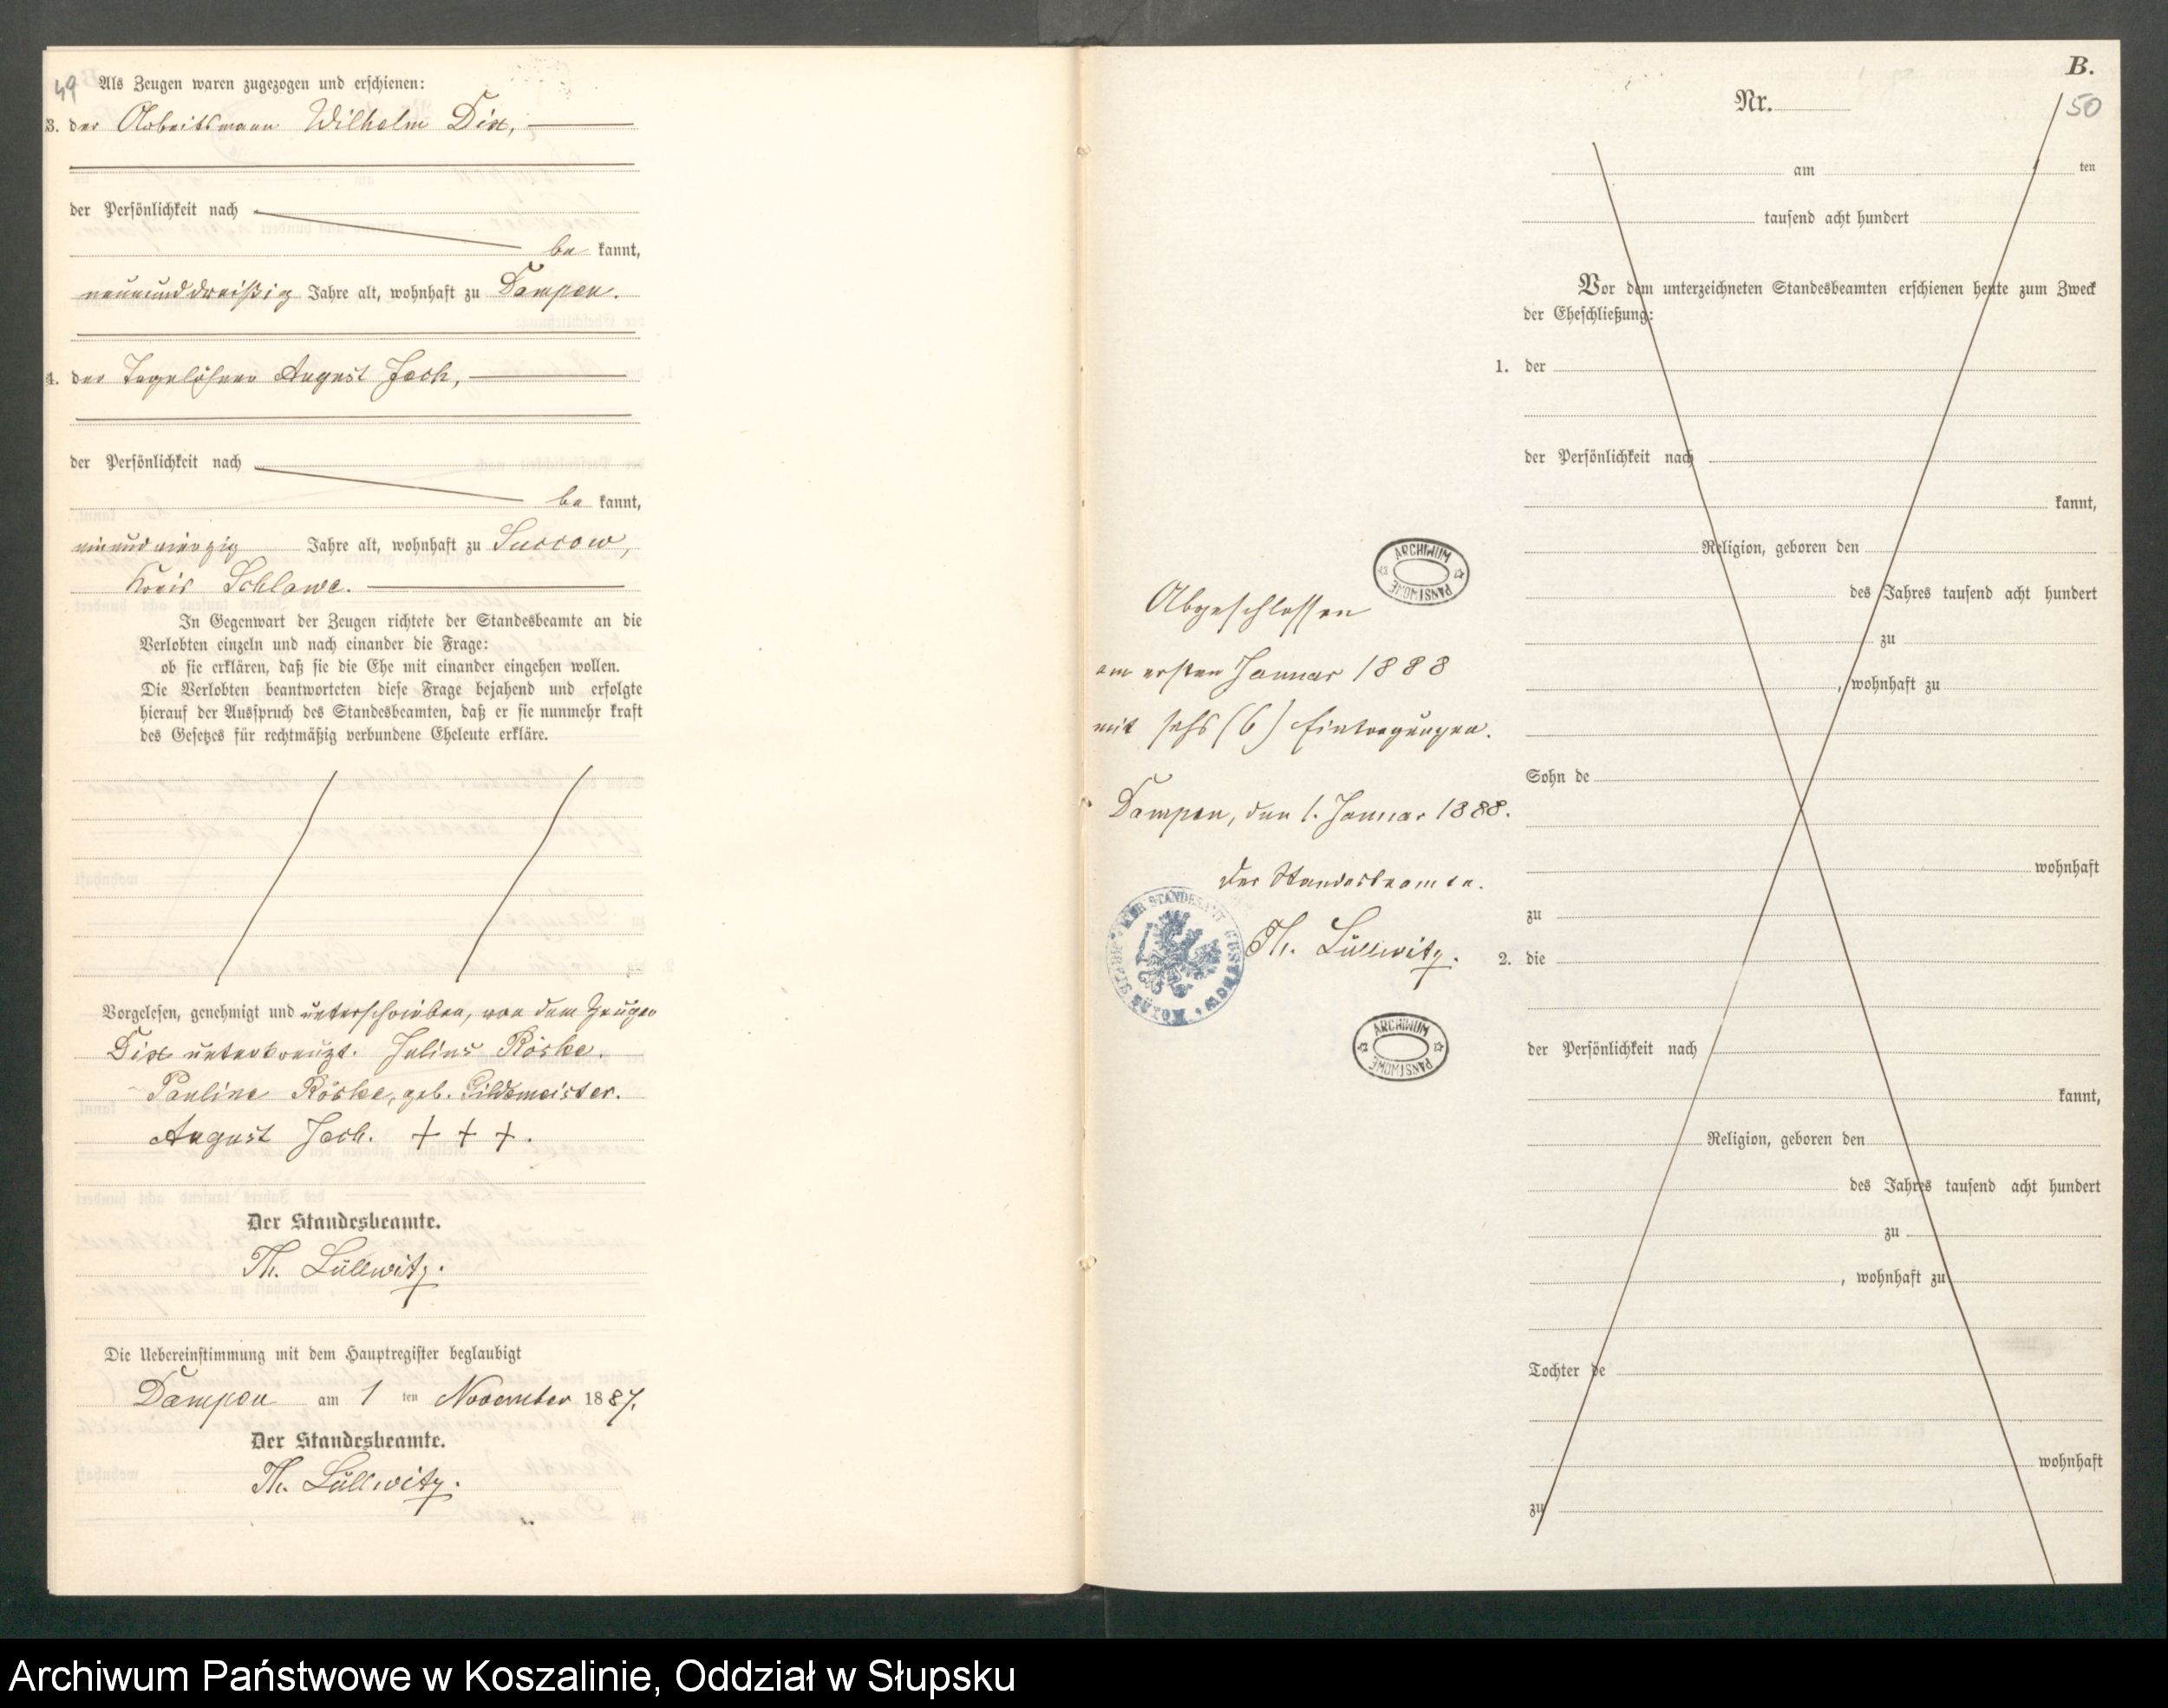 49
Als Zeugen waren zugezogen und erschienen:
3. der Arbeitsmann Wilhelm Dix,
der Persönlichkeit nach
be kannt,
neununddreißig Jahre alt, wohnhaft zu Dampen.
4. der Tagelöhner August Jech,
der Persönlichkeit nach
be kannt,
einundvierzig Jahre alt, wohnhaft zu Suckow,
Kreis Schlawe.
In Gegenwart der Zeugen richtete der Standesbeamte an die
Verlobten einzeln und nach einander die Frage:
ob sie erklären, daß sie die Ehe mit einander eingehen wollen.
Die Verlobten beantworteten diese Frage bejahend und erfolgte
hierauf der Ausspruch des Standesbeamten, daß er sie nunmehr kraft
des Gesetzes für rechtmäßig verbundene Eheleute erkläre.
Vorgelesen, genehmigt und unterschrieben, von dem Zeugen
Dix unterkreuzt. Julius Röske.
Pauline Röske, geb. Gildemeister.
August Jech. + + +.
Der Standesbeamte.
Th. Lüllwitz.
Die Uebereinstimmung mit dem Hauptregister beglaubigt
Dampen am 1 ten November 1887.
Der Standesbeamte.
Th. Lüllwitz.
B.
50
Nr.
am ten
tausend acht hundert
Vor dem unterzeichneten Standesbeamten erschienen heute zum Zweck
der Eheschließung:
1. der
der Persönlichkeit nach
kannt,
Religion, geboren den
des Jahres tausend acht hundert
zu
, wohnhaft zu
Sohn de
wohnhaft
zu
2. die
der Persönlichkeit nach
kannt,
Religion, geboren den
des Jahres tausend acht hundert
zu
, wohnhaft zu
Tochter de
wohnhaft
zu
ARCHIWUM PAŃSTWOWE
Abgeschlossen
am ersten Januar 1888
mit sechs (6) Eintragungen.
Dampen, den 1. Januar 1888.
Der Standesbeamte.
Th. Lüllwitz.
ARCHIWUM PAŃSTWOWE
Archiwum Państwowe w Koszalinie, Oddział w Słupsku